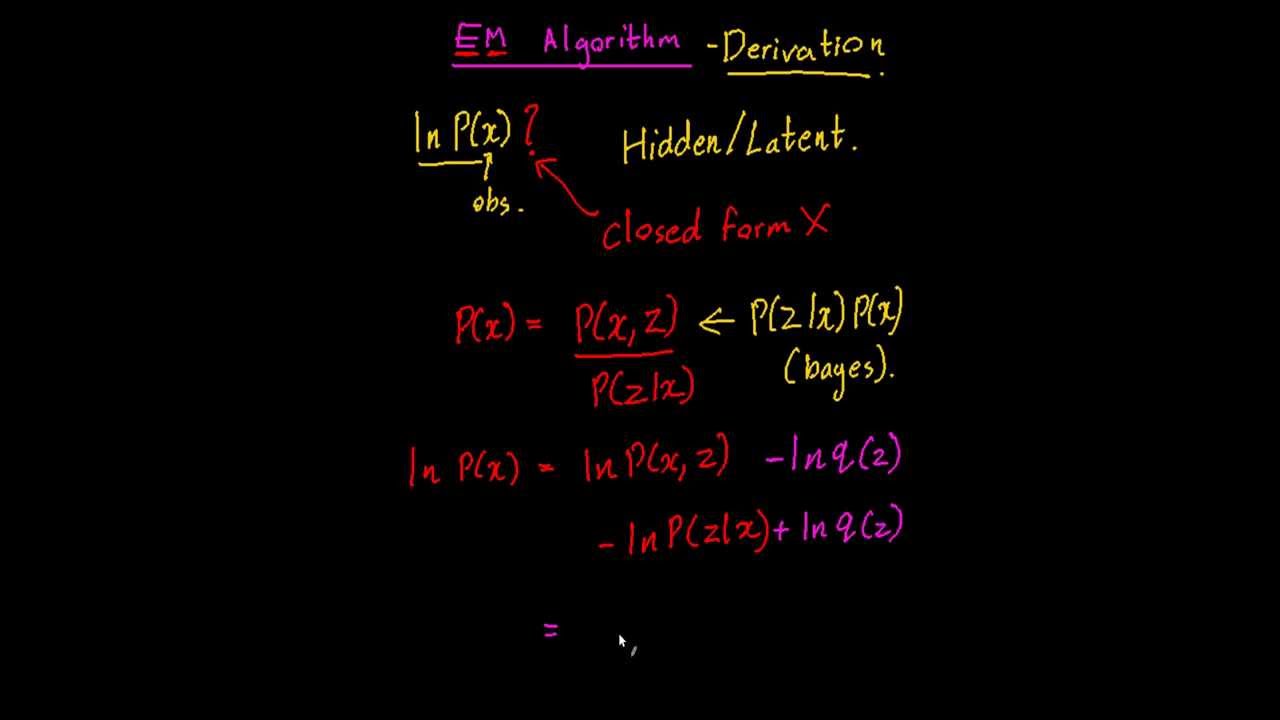 EM Algorithm - Derivation.
ln P(x) ?
Hidden/Latent.
obs.
closed form X
P(x) = P(x, z) ← P(z|x) P(x)
P(z|x)
(bayes).
ln P(x) = ln P(x, z) - ln q(z)
- ln P(z|x) + ln q(z)
=